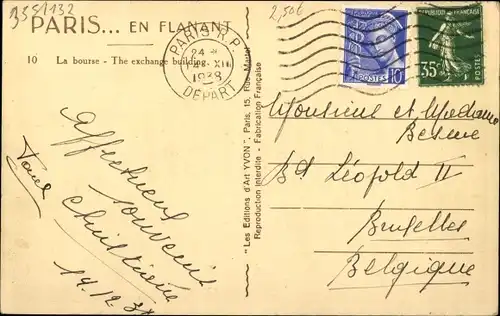 3551132
2,50€
PARIS... EN FLANANT
10 La bourse - The exchange building.
PARIS R.P.
24
XII
1938
DEPART
POSTES 10
REPUBLIQUE FRANÇAISE
35c
"Les Editions d'Art YVON", Paris, 15, Rue Martel
Reproduction Interdite - Fabrication Française
Affectueux
souvenir
14.12.38
Monsieur et Madame
Bd Léopold II
Bruxelles
Belgique